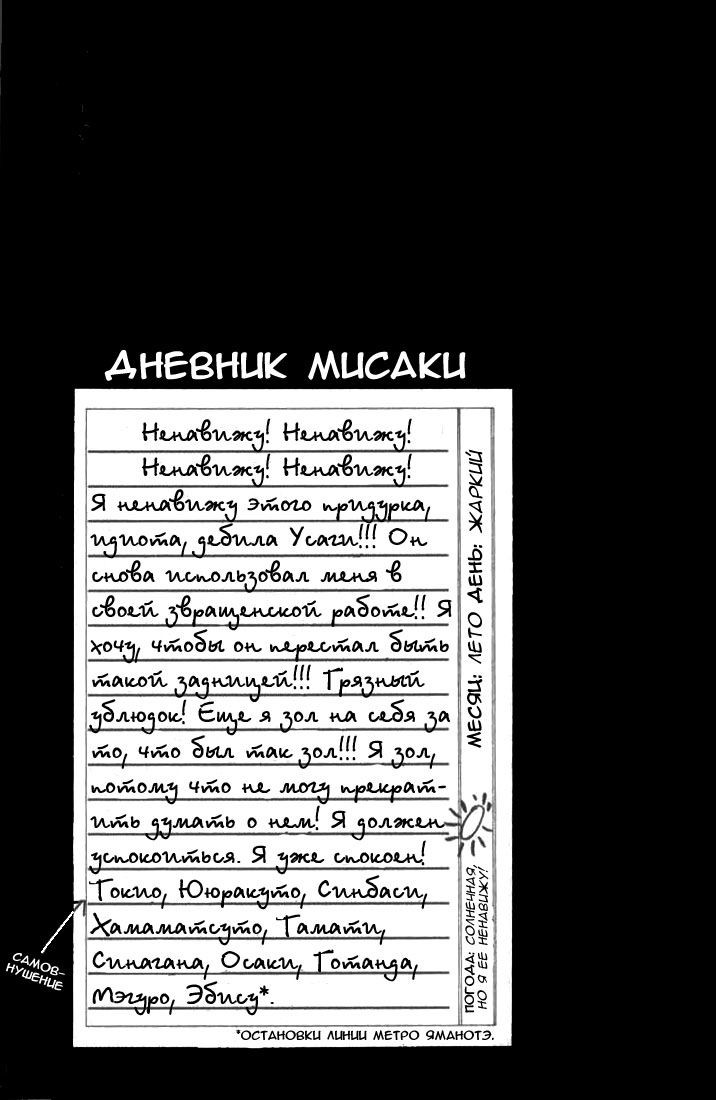 ДНЕВНИК МИСАКИ
Ненавижу! Ненавижу!
Ненавижу! Ненавижу!
Я ненавижу этого придурка,
идиота, дебила Усаги!!! Он
снова использовал меня в
своей звращенской работе!! Я
хочу, чтобы он перестал быть
такой задницей!!! Грязный
ублюдок! Еще я зол на себя за
то, что был так зол!!! Я зол,
потому что не могу прекрат-
ить думать о нем! Я должен
успокоиться. Я уже спокоен!
Токио, Ююракуто, Синбаси,
Хамаматсуто, Тамати,
Синагана, Осаки, Готанда,
Мэгуро, Эбису*.
МЕСЯЦ: ЛЕТО ДЕНЬ: ЖАРКИЙ
ПОГОДА: СОЛНЕЧНАЯ,
НО Я ЕЕ НЕНАВИЖУ!
САМОВ-
НУШЕНИЕ
*ОСТАНОВКИ ЛИНИИ МЕТРО ЯМАНОТЭ.